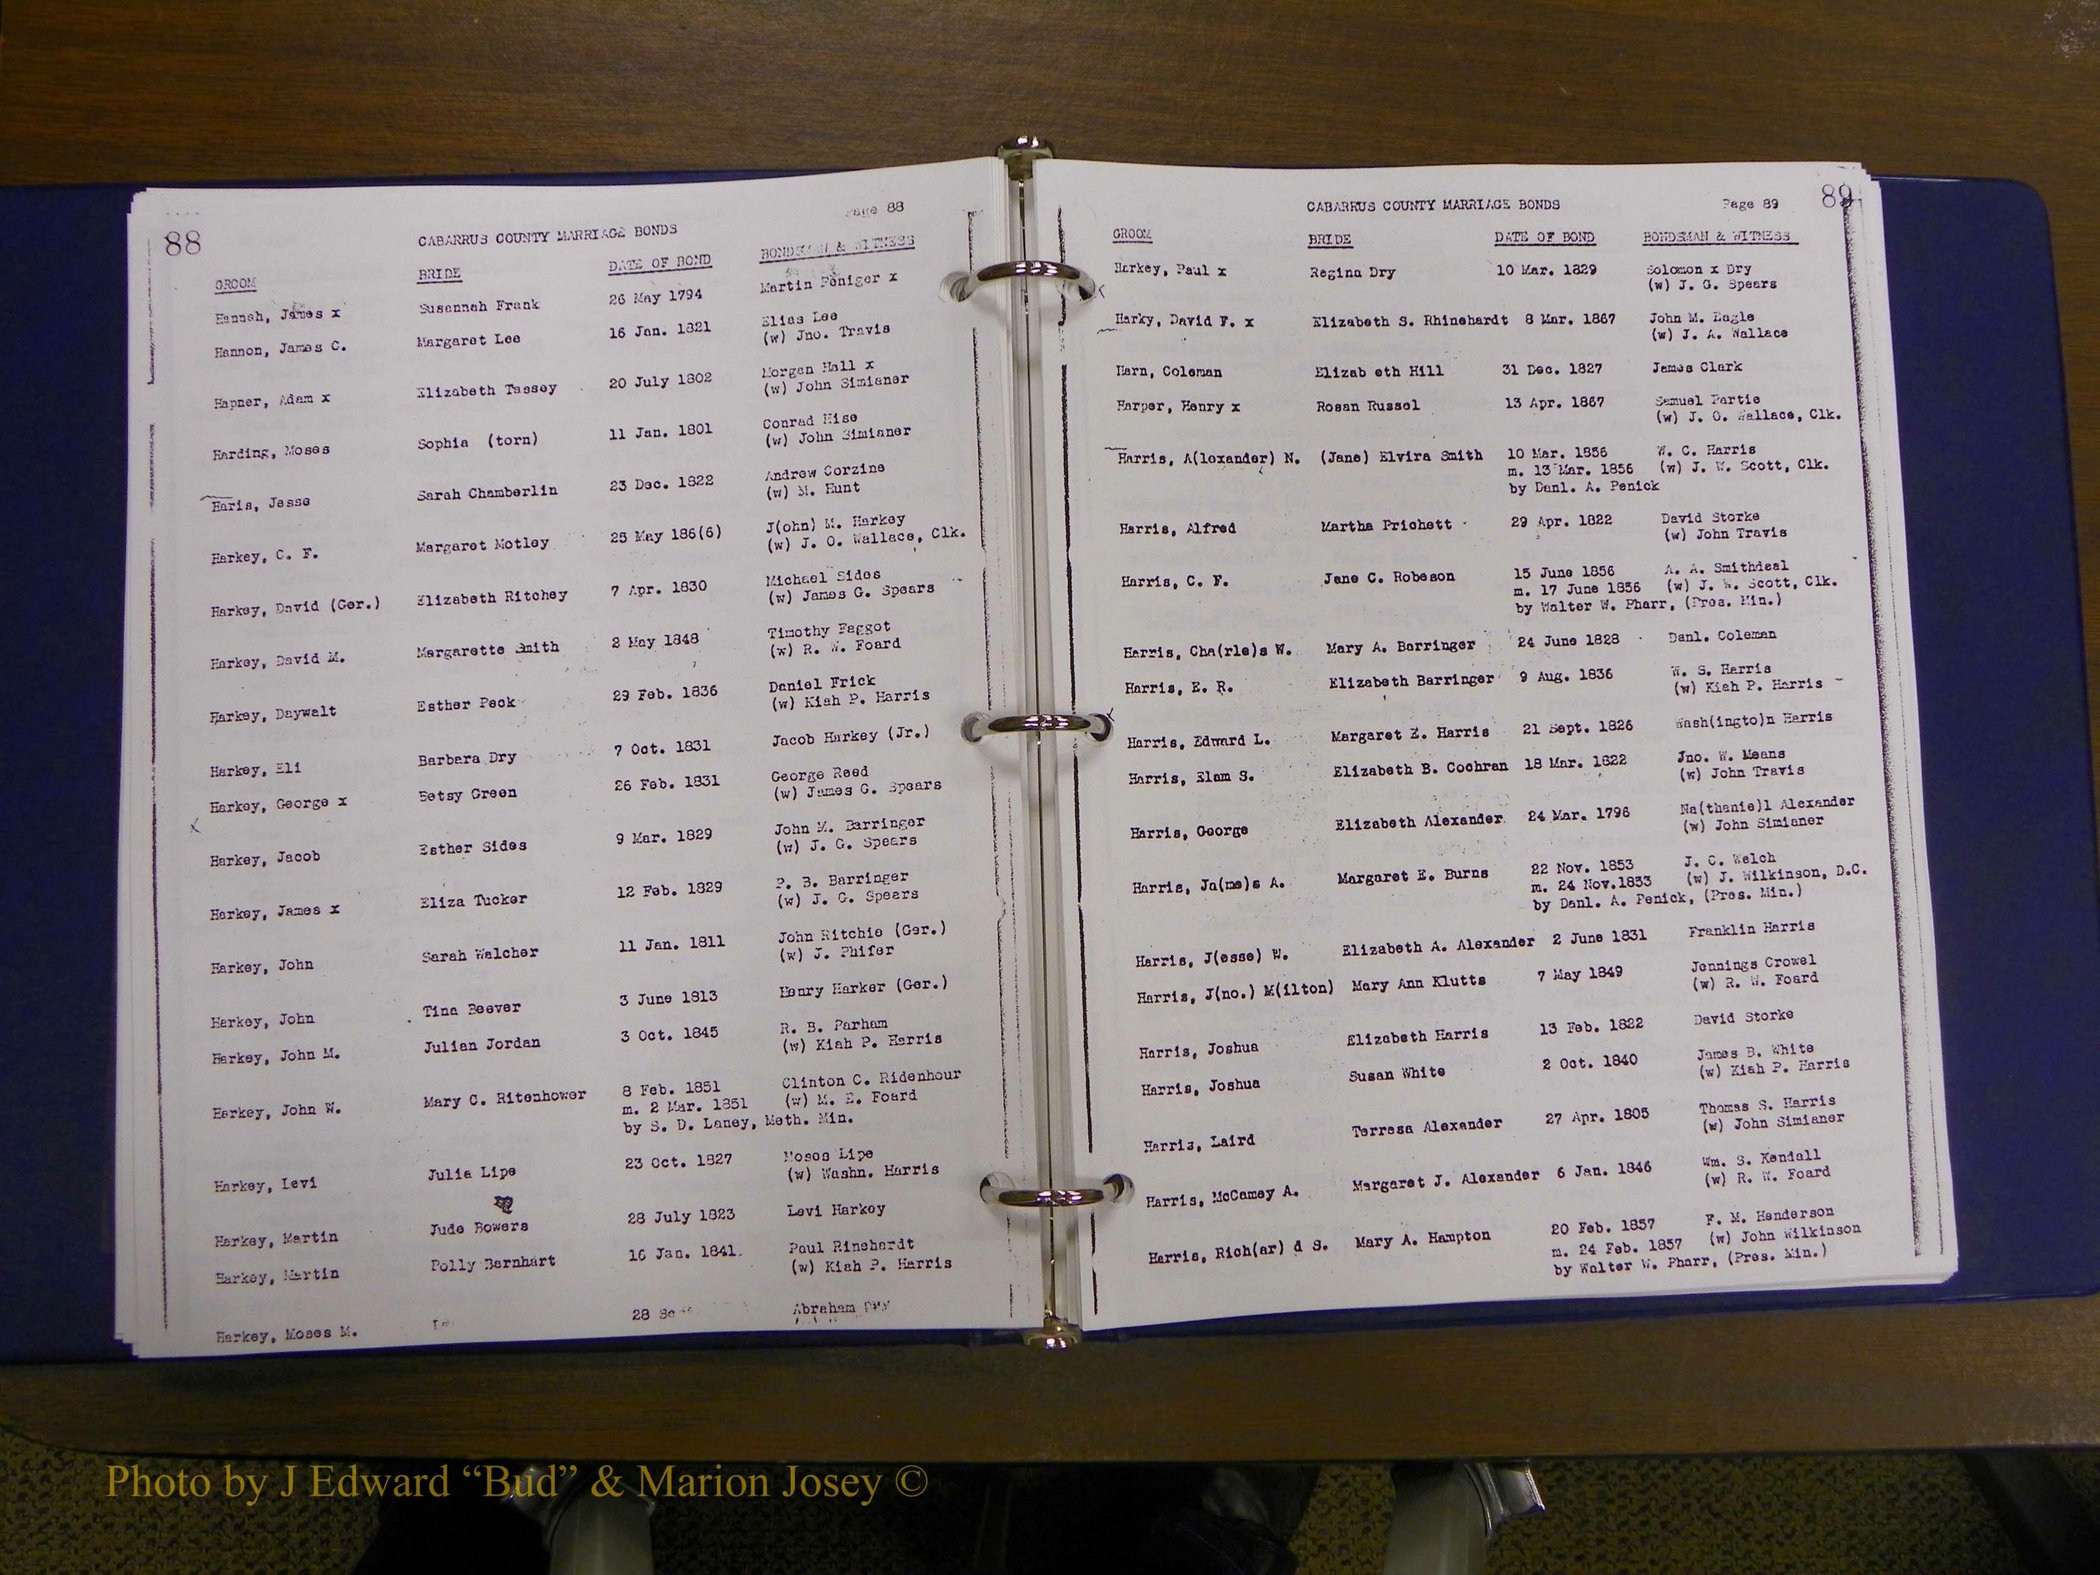 Page 88
88
CABARRUS COUNTY MARRIAGE BONDS
GROOM BRIDE DATE OF BOND BONDSMAN & WITNESS
Hannah, James x Susannah Frank 26 May 1794 Martin Peniger x
Hannon, James C. Margaret Lee 16 Jan. 1821 Elias Lee
(w) Jno. Travis
Hapner, Adam x Elizabeth Tassey 20 July 1802 Morgan Hall x
(w) John Simianer
Harding, Moses Sophia (torn) 11 Jan. 1801 Conrad Hise
(w) John Simianer
Haris, Jesse Sarah Chamberlin 23 Dec. 1822 Andrew Corzine
(w) M. Hunt
Harkey, C. F. Margaret Motley 25 May 186(6) J(ohn) M. Harkey
(w) J. O. Wallace, Clk.
Harkey, David (Ger.) Elizabeth Ritchey 7 Apr. 1830 Michael Sides
(w) James G. Spears
Harkey, David M. Margarette Smith 2 May 1848 Timothy Faggot
(w) R. W. Foard
Harkey, Daywalt Esther Peck 29 Feb. 1836 Daniel Frick
(w) Kiah P. Harris
Harkey, Eli Barbara Dry 7 Oct. 1831 Jacob Harkey (Jr.)
Harkey, George x Betsy Green 26 Feb. 1831 George Reed
(w) James G. Spears
Harkey, Jacob Esther Sides 9 Mar. 1829 John M. Barringer
(w) J. G. Spears
Harkey, James x Eliza Tucker 12 Feb. 1829 P. B. Barringer
(w) J. G. Spears
Harkey, John Sarah Walcher 11 Jan. 1811 John Ritchie (Ger.)
(w) J. Phifer
Harkey, John Tina Beever 3 June 1813 Henry Harker (Ger.)
Harkey, John M. Julian Jordan 3 Oct. 1845 R. B. Parham
(w) Kiah P. Harris
Harkey, John W. Mary C. Ritenhower 8 Feb. 1851 Clinton C. Ridenhour
m. 2 Mar. 1851 (w) M. E. Foard
by S. D. Laney, Meth. Min.
Harkey, Levi Julia Lipe 23 Oct. 1827 Moses Lipe
(w) Washn. Harris
Harkey, Martin Jude Bowers 28 July 1823 Levi Harkey
Harkey, Martin Polly Barnhart 16 Jan. 1841 Paul Rinehardt
(w) Kiah P. Harris
Harkey, Moses M. 28 Abraham
Page 89
89
CABARRUS COUNTY MARRIAGE BONDS
GROOM BRIDE DATE OF BOND BONDSMAN & WITNESS
Harkey, Paul x Regina Dry 10 Mar. 1829 Solomon x Dry
(w) J. G. Spears
Harky, David F. x Elizabeth S. Rhinehardt 8 Mar. 1867 John M. Eagle
(w) J. A. Wallace
Harn, Coleman Elizab eth Hill 31 Dec. 1827 James Clark
Harper, Henry x Rosan Russel 13 Apr. 1867 Samuel Partie
(w) J. O. Wallace, Clk.
Harris, A(lexander) N. (Jane) Elvira Smith 10 Mar. 1856 W. C. Harris
m. 13 Mar. 1856 (w) J. W. Scott, Clk.
by Danl. A. Penick
Harris, Alfred Martha Prichett 29 Apr. 1822 David Storke
(w) John Travis
Harris, C. F. Jane C. Robeson 15 June 1856 A. A. Smithdeal
m. 17 June 1856 (w) J. W. Scott, Clk.
by Walter W. Pharr, (Pres. Min.)
Harris, Cha(rle)s W. Mary A. Barringer 24 June 1828 Danl. Coleman
Harris, E. R. Elizabeth Barringer 9 Aug. 1836 W. S. Harris
(w) Kiah P. Harris
Harris, Edward L. Margaret E. Harris 21 Sept. 1826 Wash(ingto)n Harris
Harris, Elam S. Elizabeth B. Cochran 18 Mar. 1822 Jno. W. Means
(w) John Travis
Harris, George Elizabeth Alexander 24 Mar. 1796 Na(thanie)l Alexander
(w) John Simianer
Harris, Ja(me)s A. Margaret E. Burns 22 Nov. 1853 J. C. Welch
m. 24 Nov.1853 (w) J. Wilkinson, D.C.
by Danl. A. Penick, (Pres. Min.)
Harris, J(esse) W. Elizabeth A. Alexander 2 June 1831 Franklin Harris
Harris, J(no.) M(ilton) Mary Ann Klutts 7 May 1849 Jennings Crowel
(w) R. W. Foard
Harris, Joshua Elizabeth Harris 13 Feb. 1822 David Storke
Harris, Joshua Susan White 2 Oct. 1840 James B. White
(w) Kiah P. Harris
Harris, Laird Terresa Alexander 27 Apr. 1805 Thomas S. Harris
(w) John Simianer
Harris, McCamey A. Margaret J. Alexander 6 Jan. 1846 Wm. S. Kendall
(w) R. W. Foard
Harris, Rich(ar) d S. Mary A. Hampton 20 Feb. 1857 F. M. Henderson
m. 24 Feb. 1857 (w) John Wilkinson
by Walter W. Pharr, (Pres. Min.)
Photo by J Edward “Bud” & Marion Josey ©